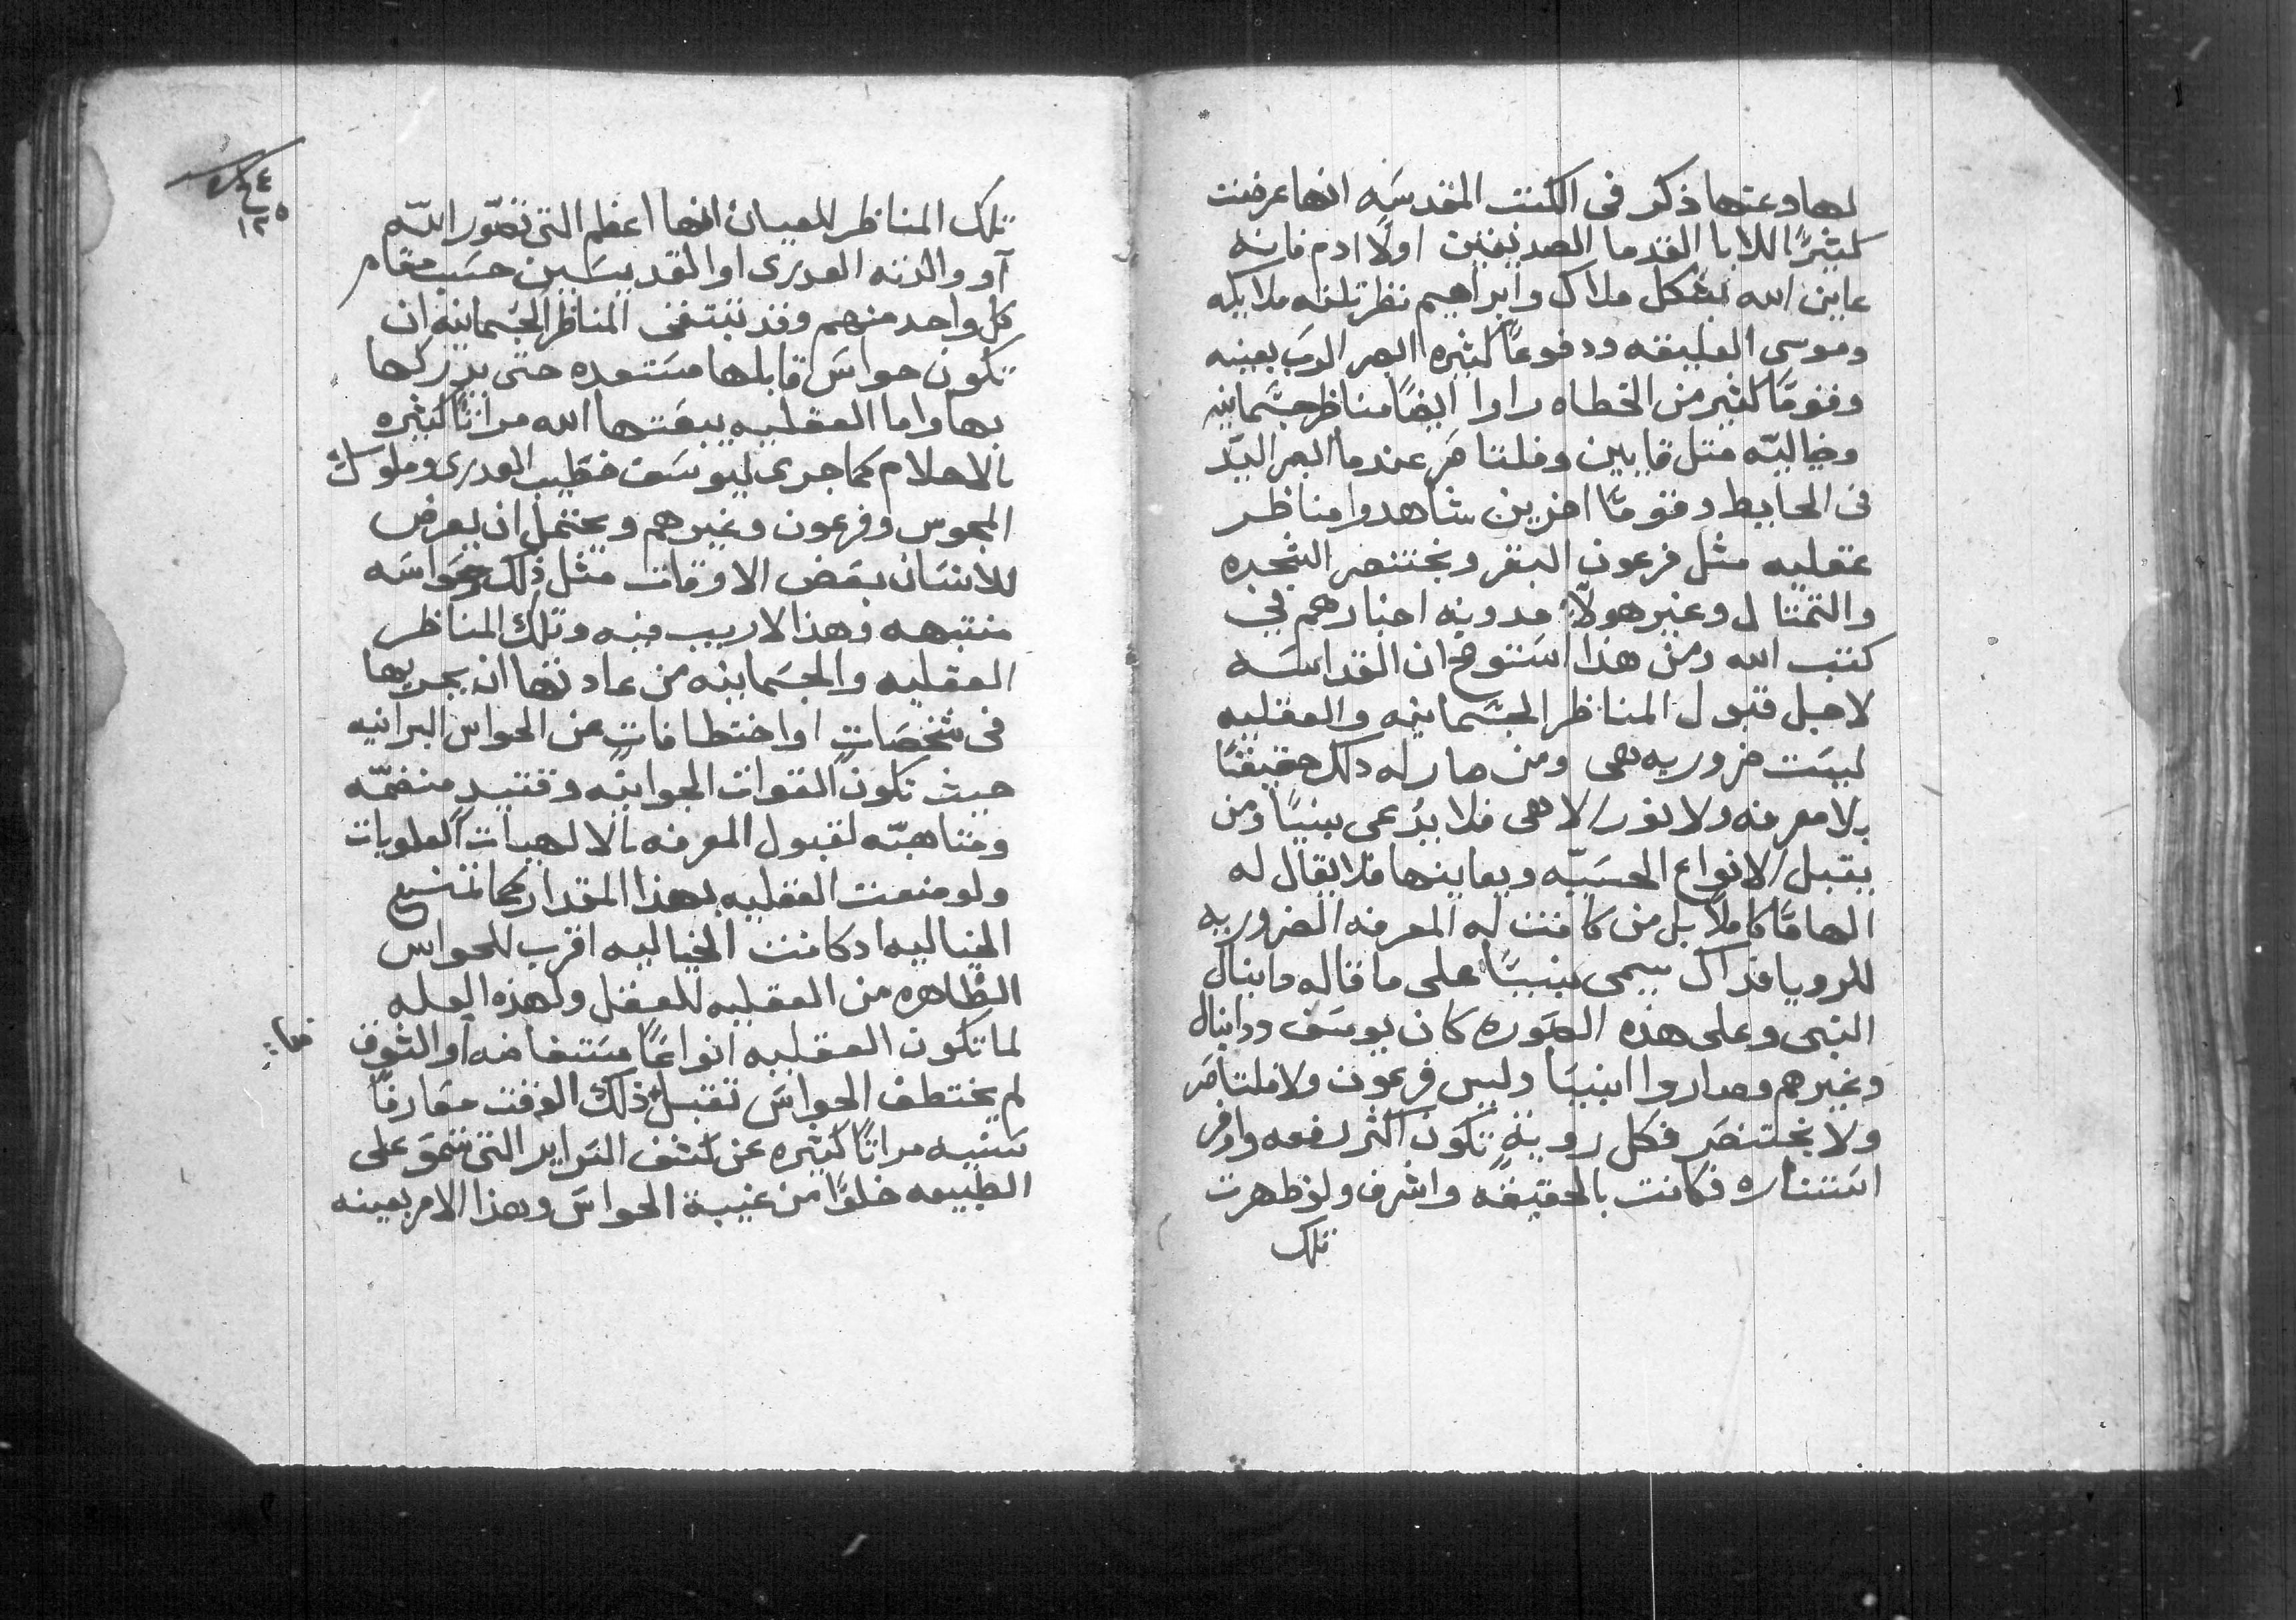 لها وعنها ذكر في الكتب المقدسَه انها عرضت
كثيرًا للابا القدما الصديقين اولًا ادم فانه
عاين الله بشكل ملاك وابراهيم نظر تلته ملايكه
وموسى العليقه ودفوعًا كثيره ابصر الربَ بعينه
وقومًا كثير من الخطاه راوا ايضًا مناظر جسَمانيه
وخياليّه متل قايين وفلتاصَر عندما ابصر اليدّ
في الحايط وقومًا اخرين شاهدوا مناظر
عقليه مثل فرعون البقر وبختنصر الشجره
والتمتال وغير هولاّ مدونه اخبارهم في
كتب الله ومن هذا استوضح ان القداسَه
لاجل قبول المناظر الجسَمانيه والعقليه
ليسَت ضروريه هى ومن صار له دلك حقيقتًا
بلا معرفه ولا نور الاهى فلا يدُعى نبيًا ومن
يقبل الانواع الحسَيّه ويعاينها فلا يقال له
الهامًا كاملًا بل من كانت له المعرفه الضروريه
للرويا فداك يسمى نبيًا على ما قاله دانيال
النبي وعلى هذه الصَوره كان يوسَف ودانيال
وغيرهم وصاروا انبيَا وليس فرعون ولا فلتاصَر
ولا بختنصَر فكل رويةٍ تكون اكثر رفعه واوفر
استناره فكانت بالحقيقه واشرف ولو ظهرت
تلك
٤٤
١٢٥
تلك المناظر للعيان انها اعظم التى تصّور الله
او والدته العدرى او القديسَين حسَب مقام
كل واحد منهم وقد تقتضى المناظر الجسُمانيه ان
تكون حواسَ قابلها مسَتعده حتى يدركها
بها واما العقليه يبعَتها الله مرارًا كثيره
بالاحلام كما جرى ليوسَف خطيب العدرى وملوك
المجوس وفرعون وغيرهم ويحتمل ان يعرض
للانسَان بعَض الاوقات مثل ذلك وحَواسَه
منتبهه وهذا لا ريب فيه وتلك المناظر
العقليه والجسَمانيه من عادتها ان يجريها
في شخصَاتٍ او اختطافاتٍ عن الحواس البرانيه
حيث تكون القوات الجوانيه وقتيدٍ منضمّه
ومتاهبّه لقبول المعرفه بالالهيات العلويات
ولو منعت العقليه بهذا المقدار كما تمنع
الخياليه ادكانت الخياليه اقرب للحواس
الظاهره من العقليه للعقل ولهذه العله
لما تكون العقليه انواعًا مسَتفاضه او الشوق
لم يختطف الحواسَ تقبل ذلك الوقت معَارفًا
سَنيه مرارًا كثيره عن كشف السَراير التى تسَمو على
الطبيعه خلوًا من غيبة الحواسَ وهذا الامر بعينه